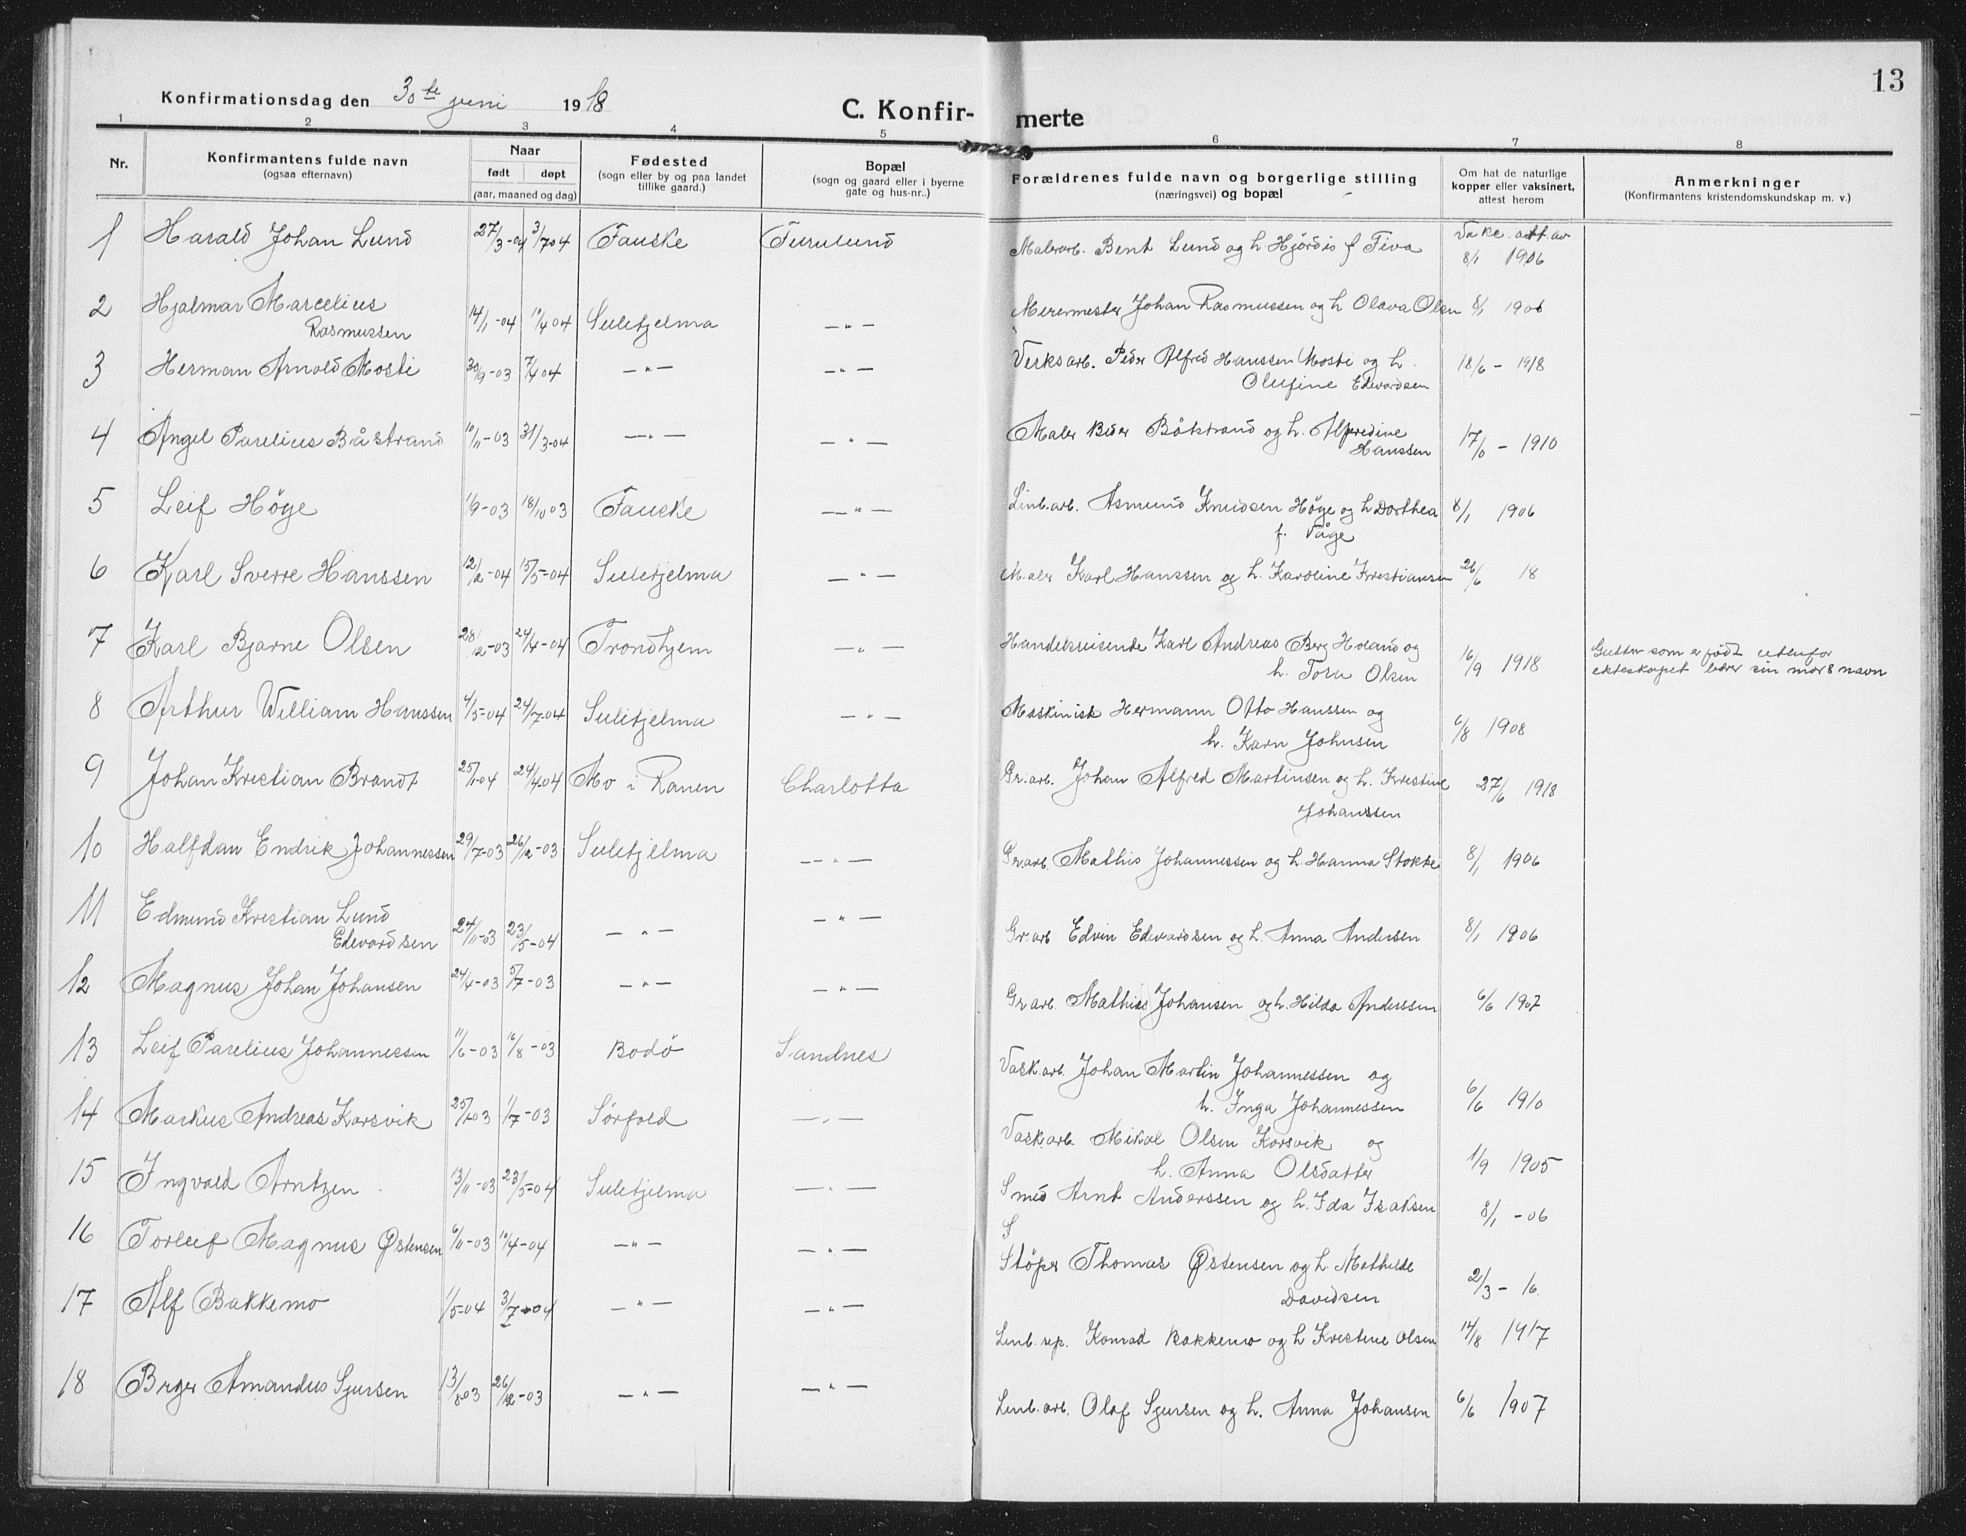 13
Konfirmationsdag den 30te juni 1918
C. Konfir- merte
1 2 3 4 5 6 7 8
Nr.
Konfirmantens fulde navn
(ogsaa efternavn)
Naar
født døpt
(aar, maaned og dag)
Fødested
(sogn eller by og paa landet
tillike gaard.)
Bopæl
(sogn og gaard eller i byerne
gate og hus-nr.)
Forældrenes fulde navn og borgerlige stilling
(næringsvei) og bopæl
Om hat de naturlige
kopper eller vaksinert,
attest herom
Anmerkninger
(Konfirmantens kristendomskundskap m. v.)
1 Harald Johan Lund 27/3-04 3/7 04 Fauske Furulund Malerarb. Bent Lund og h. Hjördis f Tiva Vakc. att. av
8/1 1906
2 Hjalmar Marcelius
Rasmussen 14/1-04 10/4 04 Sulitjelma —"— Murermester Johan Rasmussen og h Olava Olsen 8/1 1906
3 Herman Arnold Mosti 30/9-03 7/4 04 —"— —"— Verksarb. Peder Alfred Hanssen Mosti og h.
Olufine Edvardsen 18/6 - 1918
4 Angel Parelius Båstrand 10/11-03 31/3-04 —"— —"— Maler Peder Båtstrand og h. Alfredine
Hanssen 17/0 - 1910
5 Leif Höge 1/9-03 18/10 03 Fauske —"— Linb.arb. Asmund Knudsen Höge og h Dorthea
f. Våge 8/1 1906
6 Karl Sverre Hanssen 12/2-04 15/5-04 Sulitjelma —"— Maler Karl Hanssen og h. Karoline Kristiansen 26/6 18
7 Karl Bjarne Olsen 28/12-03 24/4-04 Trondhjem —"— Handelsreisende Karl Andreas Berg Holand og
h. Tora Olsen 16/9 1918 Gutten som er født utenfor
ekteskapet bærer sin mors navn
8 Arthur William Hanssen 4/5-04 24/7-04 Sulitjelma —"— Maskinist Hermann Otto Hanssen og
h. Karn Johnsen 6/8 1908
9 Johan Kristian Brandt 25/1-04 24/4 04 Mo i Ranen Charlotta Gr.arb. Johan Alfred Martinsen og h. Kristine
Johanssen 27/6 1918
10 Halfdan Endrik Johannessen 29/7-03 26/12-03 Sulitjelma —"— Gr.arb Mathis Johannessen og h. Hanna Stokke 8/1 1906
11 Edmund Kristian Lund
Edvardsen 24/11-03 23/5-04 —"— —"— Gr.arb Edvin Edvardsen og h. Anna Andersen 8/1 1906
12 Magnus Johan Johansen 24/4-03 5/7-03 —"— —"— Gr arb. Mathias Johansen og h. Hilda Anderssen 6/6 1907
13 Leif Parelius Johannessen 11/6-03 16/8-03 Bodö Sandnes Vaskarb Johan Martin Johannessen og
h. Inga Johannessen 6/6 1910
14 Markus Andreas Korsvik 25/1 03 1/7-03 Sörfold —"— Vaskarb. Mikal Olsen Korsvik og
h. Anna Olsdatter 1/9 1905
15 Ingvald Arntzen 13/11-03 23/5-04 Sulitjelma —"— Smed Arnt Anderssen og h. Ida Isaksen 8/1 -06
S
16 Torleif Magnus Østensen 6/11-03 10/4-04 —"— —"— Støper Thomas Østensen og h Mathilde
Davidsen 2/3 - 16.
17 Alf Bakkemo 1/5-04 3/7-04 —"— —"— Linb. rep. Konrad Bakkemo og h Kristine Olsen 14/8 1917
18 Birger Amandus Sjursen 13/8 03 26/12-03 —"— —"— Linb.arb. Olaf Sjursen og h. Anna Johansen 6/6 1907